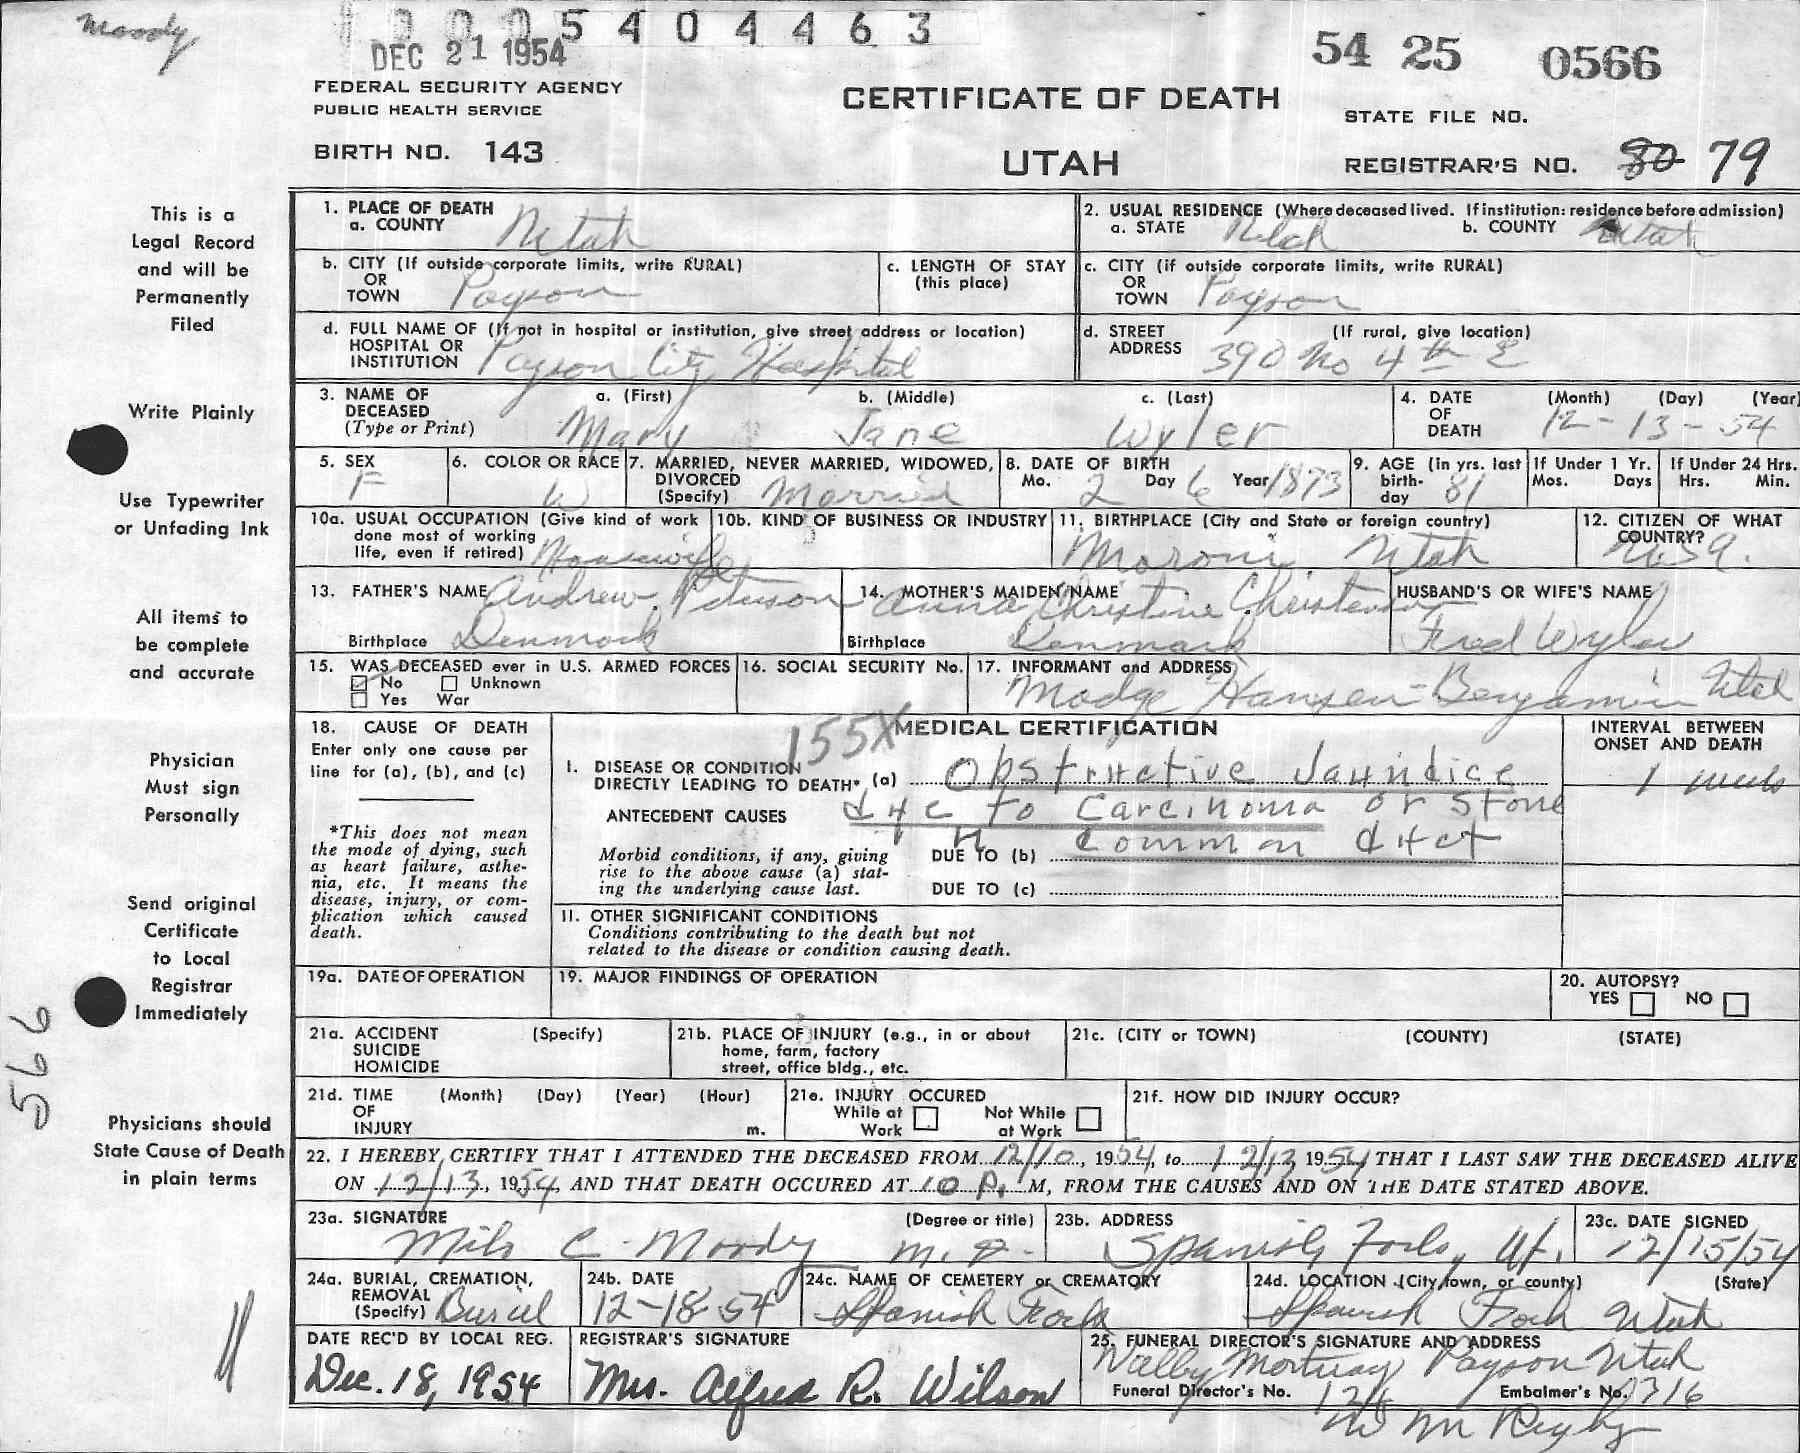 Moody
0005404463
DEC 21 1954
54 25 0566
FEDERAL SECURITY AGENCY
PUBLIC HEALTH SERVICE
CERTIFICATE OF DEATH
STATE FILE NO.
BIRTH NO. 143
UTAH
REGISTRAR'S NO. 80 79
This is a
Legal Record
and will be
Permanently
Filed
Write Plainly
Use Typewriter
or Unfading Ink
All items to
be complete
and accurate
Physician
Must sign
Personally
Send original
Certificate
to Local
Registrar
Immediately
566
Physicians should
State Cause of Death
in plain terms
1. PLACE OF DEATH
a. COUNTY Utah
2. USUAL RESIDENCE (Where deceased lived. If institution: residence before admission)
a. STATE Utah b. COUNTY Utah
b. CITY (If outside corporate limits, write RURAL)
OR
TOWN Payson
c. LENGTH OF STAY
(this place)
c. CITY (if outside corporate limits, write RURAL)
OR
TOWN Payson
d. FULL NAME OF (If not in hospital or institution, give street address or location)
HOSPITAL OR
INSTITUTION Payson City Hospital
d. STREET (If rural, give location)
ADDRESS 390 No 4th E
3. NAME OF
DECEASED
(Type or Print)
a. (First) b. (Middle) c. (Last)
Mary Jane Wyler
4. DATE
OF
DEATH
(Month) (Day) (Year)
12-13-54
5. SEX
F
6. COLOR OR RACE
W
7. MARRIED, NEVER MARRIED, WIDOWED,
DIVORCED
(Specify) Married
8. DATE OF BIRTH
Mo. 2 Day 6 Year 1873
9. AGE (in yrs. last
birth-
day 81
If Under 1 Yr.
Mos. Days
If Under 24 Hrs.
Hrs. Min.
10a. USUAL OCCUPATION (Give kind of work
done most of working
life, even if retired) Housewife
10b. KIND OF BUSINESS OR INDUSTRY
11. BIRTHPLACE (City and State or foreign country)
Moroni, Utah
12. CITIZEN OF WHAT
COUNTRY?
USA.
13. FATHER'S NAME Andrew Peterson
Birthplace Denmark
14. MOTHER'S MAIDEN NAME
Anna Christine Christensen
Birthplace Denmark
HUSBAND'S OR WIFE'S NAME
Fred Wyler
15. WAS DECEASED ever in U.S. ARMED FORCES
No Unknown
Yes War
16. SOCIAL SECURITY No.
17. INFORMANT and ADDRESS
Madge Hansen - Benjamin Utah
18. CAUSE OF DEATH
Enter only one cause per
line for (a), (b), and (c)
*This does not mean
the mode of dying, such
as heart failure, asthe-
nia, etc. It means the
disease, injury, or com-
plication which caused
death.
155X
MEDICAL CERTIFICATION
I. DISEASE OR CONDITION
DIRECTLY LEADING TO DEATH* (a) Obstructive Jaundice
ANTECEDENT CAUSES due to Carcinoma or Stone
Morbid conditions, if any, giving
rise to the above cause (a) stat-
ing the underlying cause last.
DUE TO (b) Common duct
DUE TO (c)
II. OTHER SIGNIFICANT CONDITIONS
Conditions contributing to the death but not
related to the disease or condition causing death.
INTERVAL BETWEEN
ONSET AND DEATH
1 week
19a. DATE OF OPERATION
19. MAJOR FINDINGS OF OPERATION
20. AUTOPSY?
YES NO
21a. ACCIDENT (Specify)
SUICIDE
HOMICIDE
21b. PLACE OF INJURY (e.g., in or about
home, farm, factory
street, office bldg., etc.
21c. (CITY or TOWN) (COUNTY) (STATE)
21d. TIME (Month) (Day) (Year) (Hour)
OF
INJURY m.
21e. INJURY OCCURED
While at Work Not While at Work
21f. HOW DID INJURY OCCUR?
22. I HEREBY CERTIFY THAT I ATTENDED THE DECEASED FROM 12/10, 1954, to 12/13 1954 THAT I LAST SAW THE DECEASED ALIVE
ON 12/13, 1954, AND THAT DEATH OCCURED AT 10 P. M, FROM THE CAUSES AND ON THE DATE STATED ABOVE.
23a. SIGNATURE (Degree or title)
Milo C. Moody M.D.
23b. ADDRESS
Spanish Fork, Ut.
23c. DATE SIGNED
12/15/54
24a. BURIAL, CREMATION,
REMOVAL
(Specify) Burial
24b. DATE
12-18-54
24c. NAME OF CEMETERY or CREMATORY
Spanish Fork
24d. LOCATION (City, town, or county) (State)
Spanish Fork Utah
DATE REC'D BY LOCAL REG.
Dec. 18, 1954
REGISTRAR'S SIGNATURE
Mrs. Alfred R. Wilson
25. FUNERAL DIRECTOR'S SIGNATURE AND ADDRESS
Mortuary Payson Utah
Funeral Director's No. Embalmer's No. 316
W M Rigby